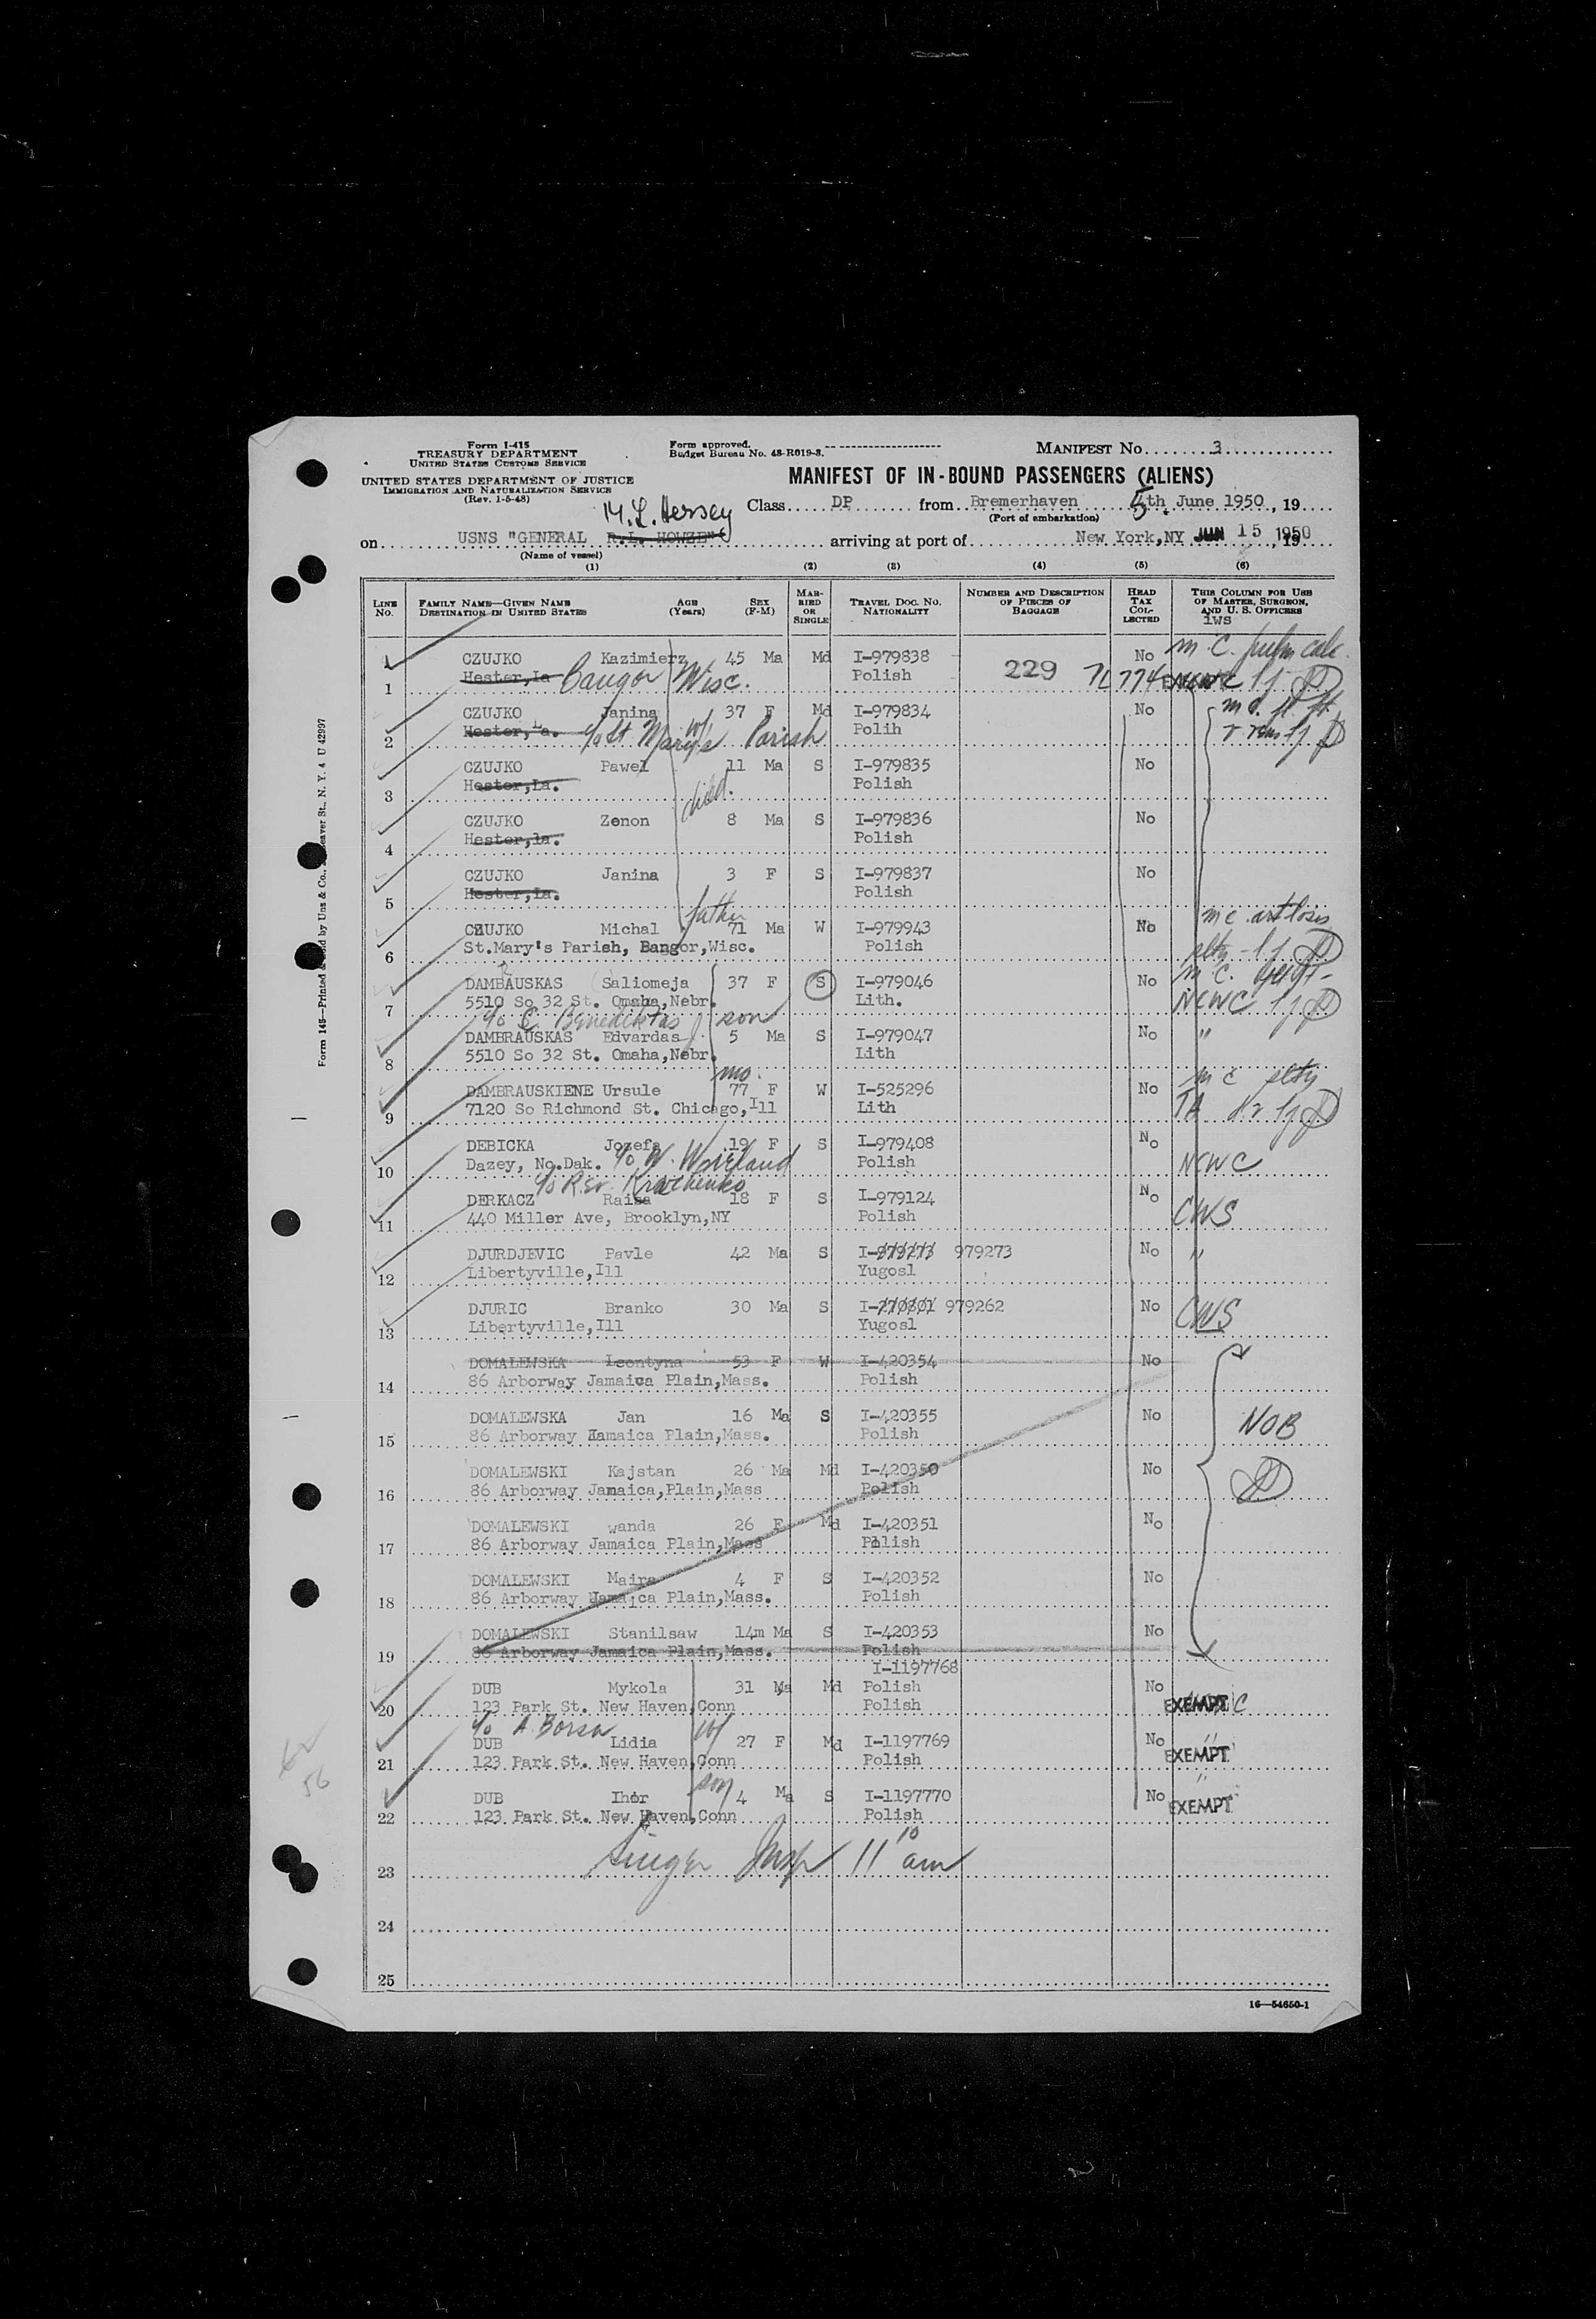 Form I-415
TREASURY DEPARTMENT
UNITED STATES CUSTOMS SERVICE
UNITED STATES DEPARTMENT OF JUSTICE
IMMIGRATION AND NATURALIZATION SERVICE
(Rev. 1-5-48)
Form approved.
Budget Bureau No. 43-R019-3.
MANIFEST No. 3
MANIFEST OF IN-BOUND PASSENGERS (ALIENS)
Class DP from Bremerhaven 5th June 1950, 19
(Port of embarkation)
M.L. Hersey
on USNS "GENERAL R.L. HOWZE" arriving at port of New York,NY JUN 15 1950, 19
(Name of vessel)
(1) (2) (3) (4) (5) (6)
LINE No. FAMILY NAME—GIVEN NAME DESTINATION IN UNITED STATES AGE (Years) SEX (F-M) MARRIED OR SINGLE TRAVEL DOC. NO. NATIONALITY NUMBER AND DESCRIPTION OF PIECES OF BAGGAGE HEAD TAX COLLECTED THIS COLUMN FOR USE OF MASTER, SURGEON, AND U. S. OFFICERS
iws
CZUJKO Kazimierz 45 Ma Md I-979838 No m.c.
1 Hester,La Bangor Wisc. Polish 229 NCWC
CZUJKO Janina wf 37 F Md I-979834 No
2 Hester,La. c/o St Mary's Parish Polih
CZUJKO Pawel 11 Ma S I-979835 No
3 Hester,La. Polish
child.
CZUJKO Zenon 8 Ma S I-979836 No
4 Hester,la. Polish
CZUJKO Janina 3 F S I-979837 No
5 Hester,La. Polish
father
CZUJKO Michal 71 Ma W I-979943 No
6 St.Mary's Parish, Bangor,Wisc. Polish
DAMBAUSKAS Saliomeja 37 F S I-979046 No
7 5510 So 32 St. Omaha,Nebr. Lith. NCWC
c/o Benediktas son
DAMBRAUSKAS Edvardas 5 Ma S I-979047 No "
8 5510 So 32 St. Omaha,Nebr. Lith
mo.
DAMBRAUSKIENE Ursule 77 F W I-525296 No
9 7120 So Richmond St. Chicago,Ill Lith
DEBICKA Jozefa 19 F S I-979408 No
10 Dazey, No.Dak. c/o W. Polish NCWC
c/o Rev. Kratchenko
DERKACZ Raisa 18 F S I-979124 No
11 440 Miller Ave, Brooklyn,NY Polish CWS
DJURDJEVIC Pavle 42 Ma S I-979273 979273 No "
12 Libertyville,Ill Yugosl
DJURIC Branko 30 Ma S I-770801 979262 No CWS
13 Libertyville,Ill Yugosl
DOMALEWSKA Leontyna 53 F W I-420354 No
14 86 Arborway Jamaica Plain,Mass. Polish
DOMALEWSKA Jan 16 Ma S I-420355 No NOB
15 86 Arborway Jamaica Plain,Mass. Polish
DOMALEWSKI Kajstan 26 Ma Md I-420350 No
16 86 Arborway Jamaica,Plain,Mass Polish
DOMALEWSKI wanda 26 F Md I-420351 No
17 86 Arborway Jamaica Plain,Mass Polish
DOMALEWSKI Maira 4 F S I-420352 No
18 86 Arborway Jamaica Plain,Mass. Polish
DOMALEWSKI Stanilsaw 14m Ma S I-420353 No
19 86 Arborway Jamaica Plain,Mass. Polish
I-1197768
DUB Mykola 31 Ma Md Polish No
20 123 Park St. New Haven,Conn Polish EXEMPT
c/o A. Borsa wf
DUB Lidia 27 F Md I-1197769 No "
21 123 Park St. New Haven,Conn Polish EXEMPT
son
DUB Ihor 4 Ma S I-1197770 No "
22 123 Park St. New Haven,Conn Polish EXEMPT
23 Singer Insp 11 10 am
24
25
16—54650-1
Form 145—Printed
56